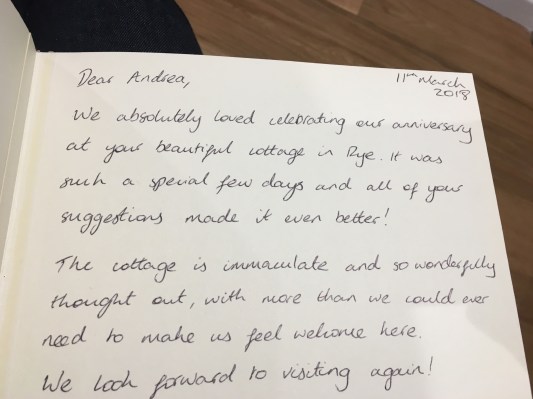 Dear Andrea,
11th March
2018
We absolutely loved celebrating our anniversary
at your beautiful cottage in Rye. It was
such a special few days and all of your
suggestions made it even better!
The cottage is immaculate and so wonderfully
thought out, with more than we could ever
need to make us feel welcome here.
We look forward to visiting again!